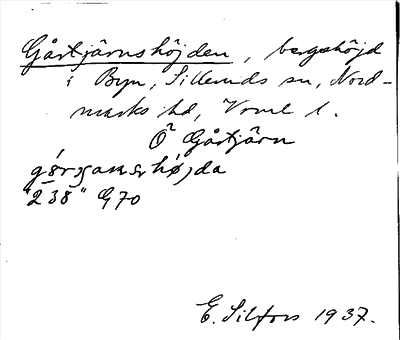 Gårtjärnshöjden, bergshöjd
i Byn, Silleruds sn, Nord-
marks hd, Vrml l.
Ö Gårtjärn
"238" G70
E. Silfors 1937.